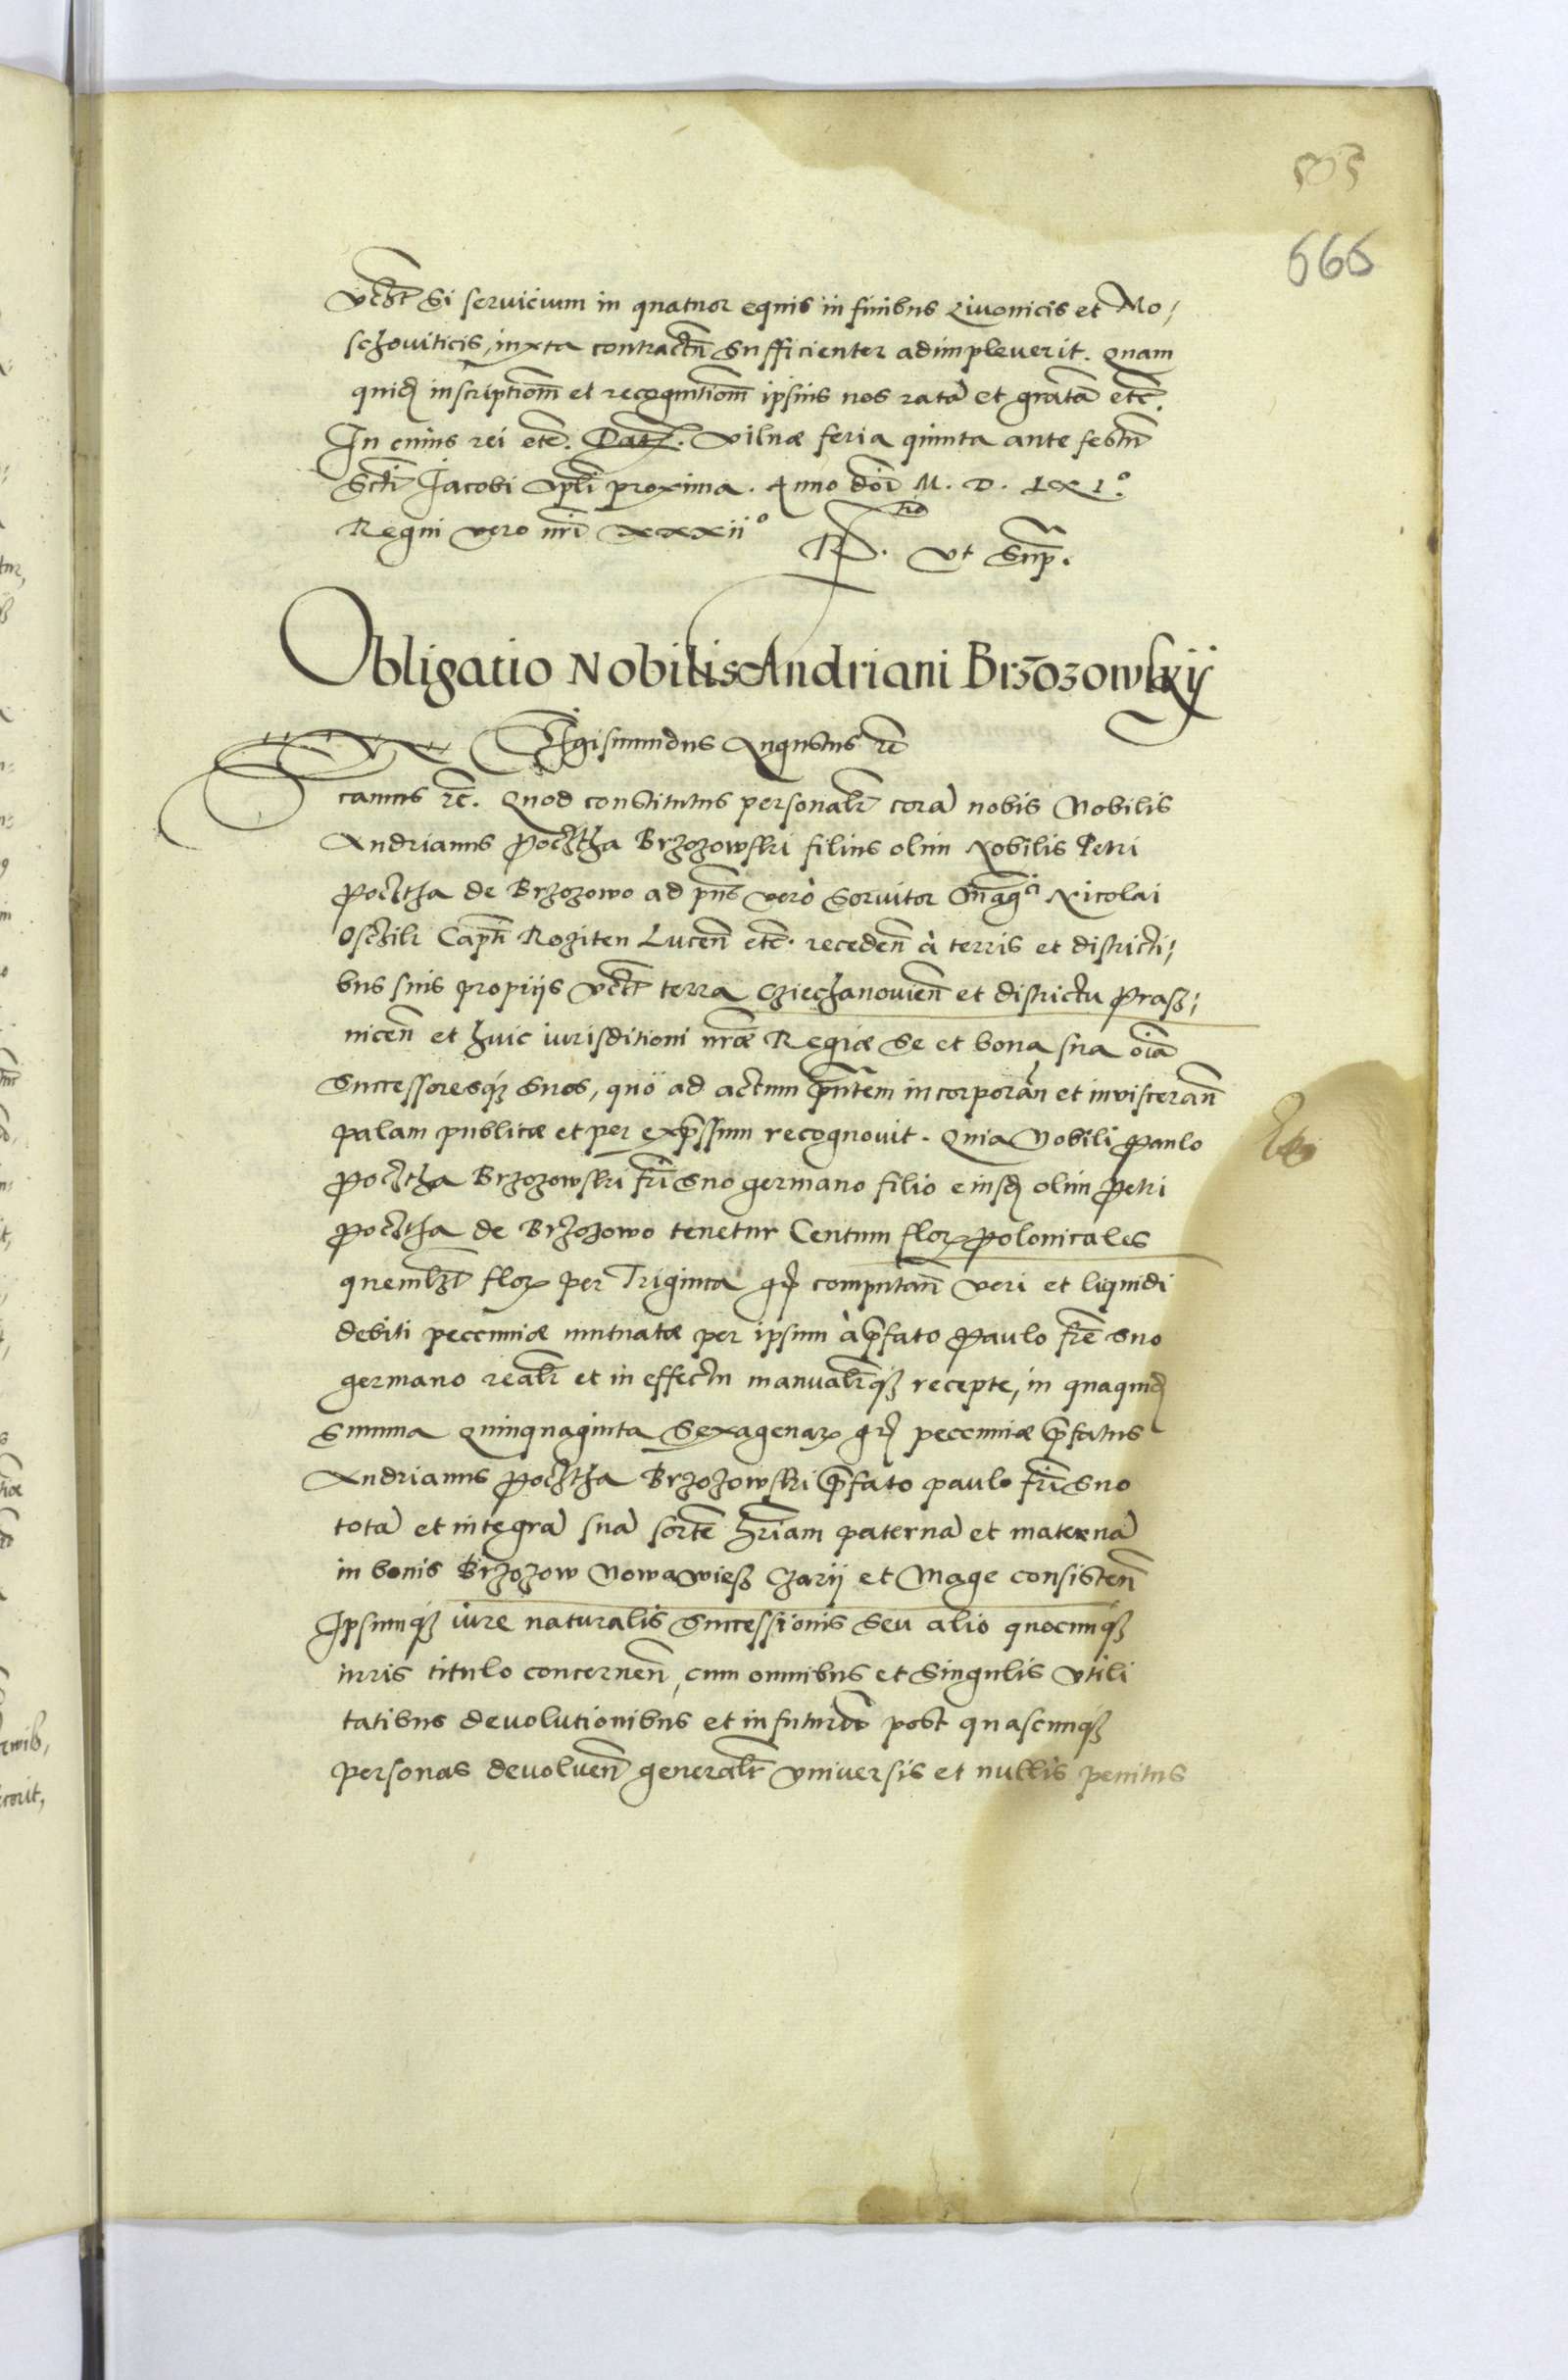 505
666
vdzt Si seruicium in quatuor equis in finibus Liuonicis et Mo,
schouiticis, iuxta contractū Sufficienter adimpleuerit. Quam
quidē inscriptionē et recognitionē ipsius nos ratā et gratā etc̄.
In cuius rei etc̄. Datū. Vilnæ feria quinta ante festū
Scti Jacobi Apli proxima. Anno doī M. D. LXI.º
Regni vero nrī xxxiiº
Rtio. vt Supra.
Obligatio Nobilis Andriani Brzozowskij
Sigismundus Augustus rc̄
camus rc̄. Quod constitutus personalr̄ corā nobis Nobilis
Andrianus Pocztha Brzozowski filius olim Nobilis Petri
Pocztha de Brzozowo ad pn̄s verò Seruitor Mag̃ci Nicolai
Osczik Captī Roziten Lucen̄ etc̄. receden̄ à terris et districti,
bus suis propiis vdzt terra Cziechanouien̄ et districtu Prasz,
nicen̄ et huic iurisditioni nrǣ Regiæ Se et bona sua oīa
Successoresqz Suos, quo ad actum pn̄tem incorporan̄ et inuisceran̄
palam publicæ et per exp̄ssum recognouit. Quia Nobili Paulo
Pocztha Brzozowski frī Suo germano filio eiusdē olim Petri
Pocztha de Brzozowo tenetur Centum flor̄ Polonicales
quemlzt flor̄ per Triginta gr̄ computan̄ veri et liquidi
debiti pecuniæ mutuatæ per ipsum à p̄fato Paulo frē suo
germano realr̄ et in effectu manualr̄qz recepte, in quaquidē
Summa Quinquaginta Sexagenar̄ gr̄ pecuniæ p̄fatus
Andrianus Pocztha Brzozowski p̄fato paulo frī Suo
totā et integrā suā sortē hr̄iam paternā et maternā
in bonis Brzozow Nowawiesz Czarij et Mage consisten̄
Ipsumqz iure naturalis Successionis Seu alio quocunqz
iuris titulo concernen̄, cum omnibus et Singulis Vtili
tatibus deuolutionibus et in futurū post quascunqz
personas deuoluen̄ generalr̄ vniuersis et nullis penitus